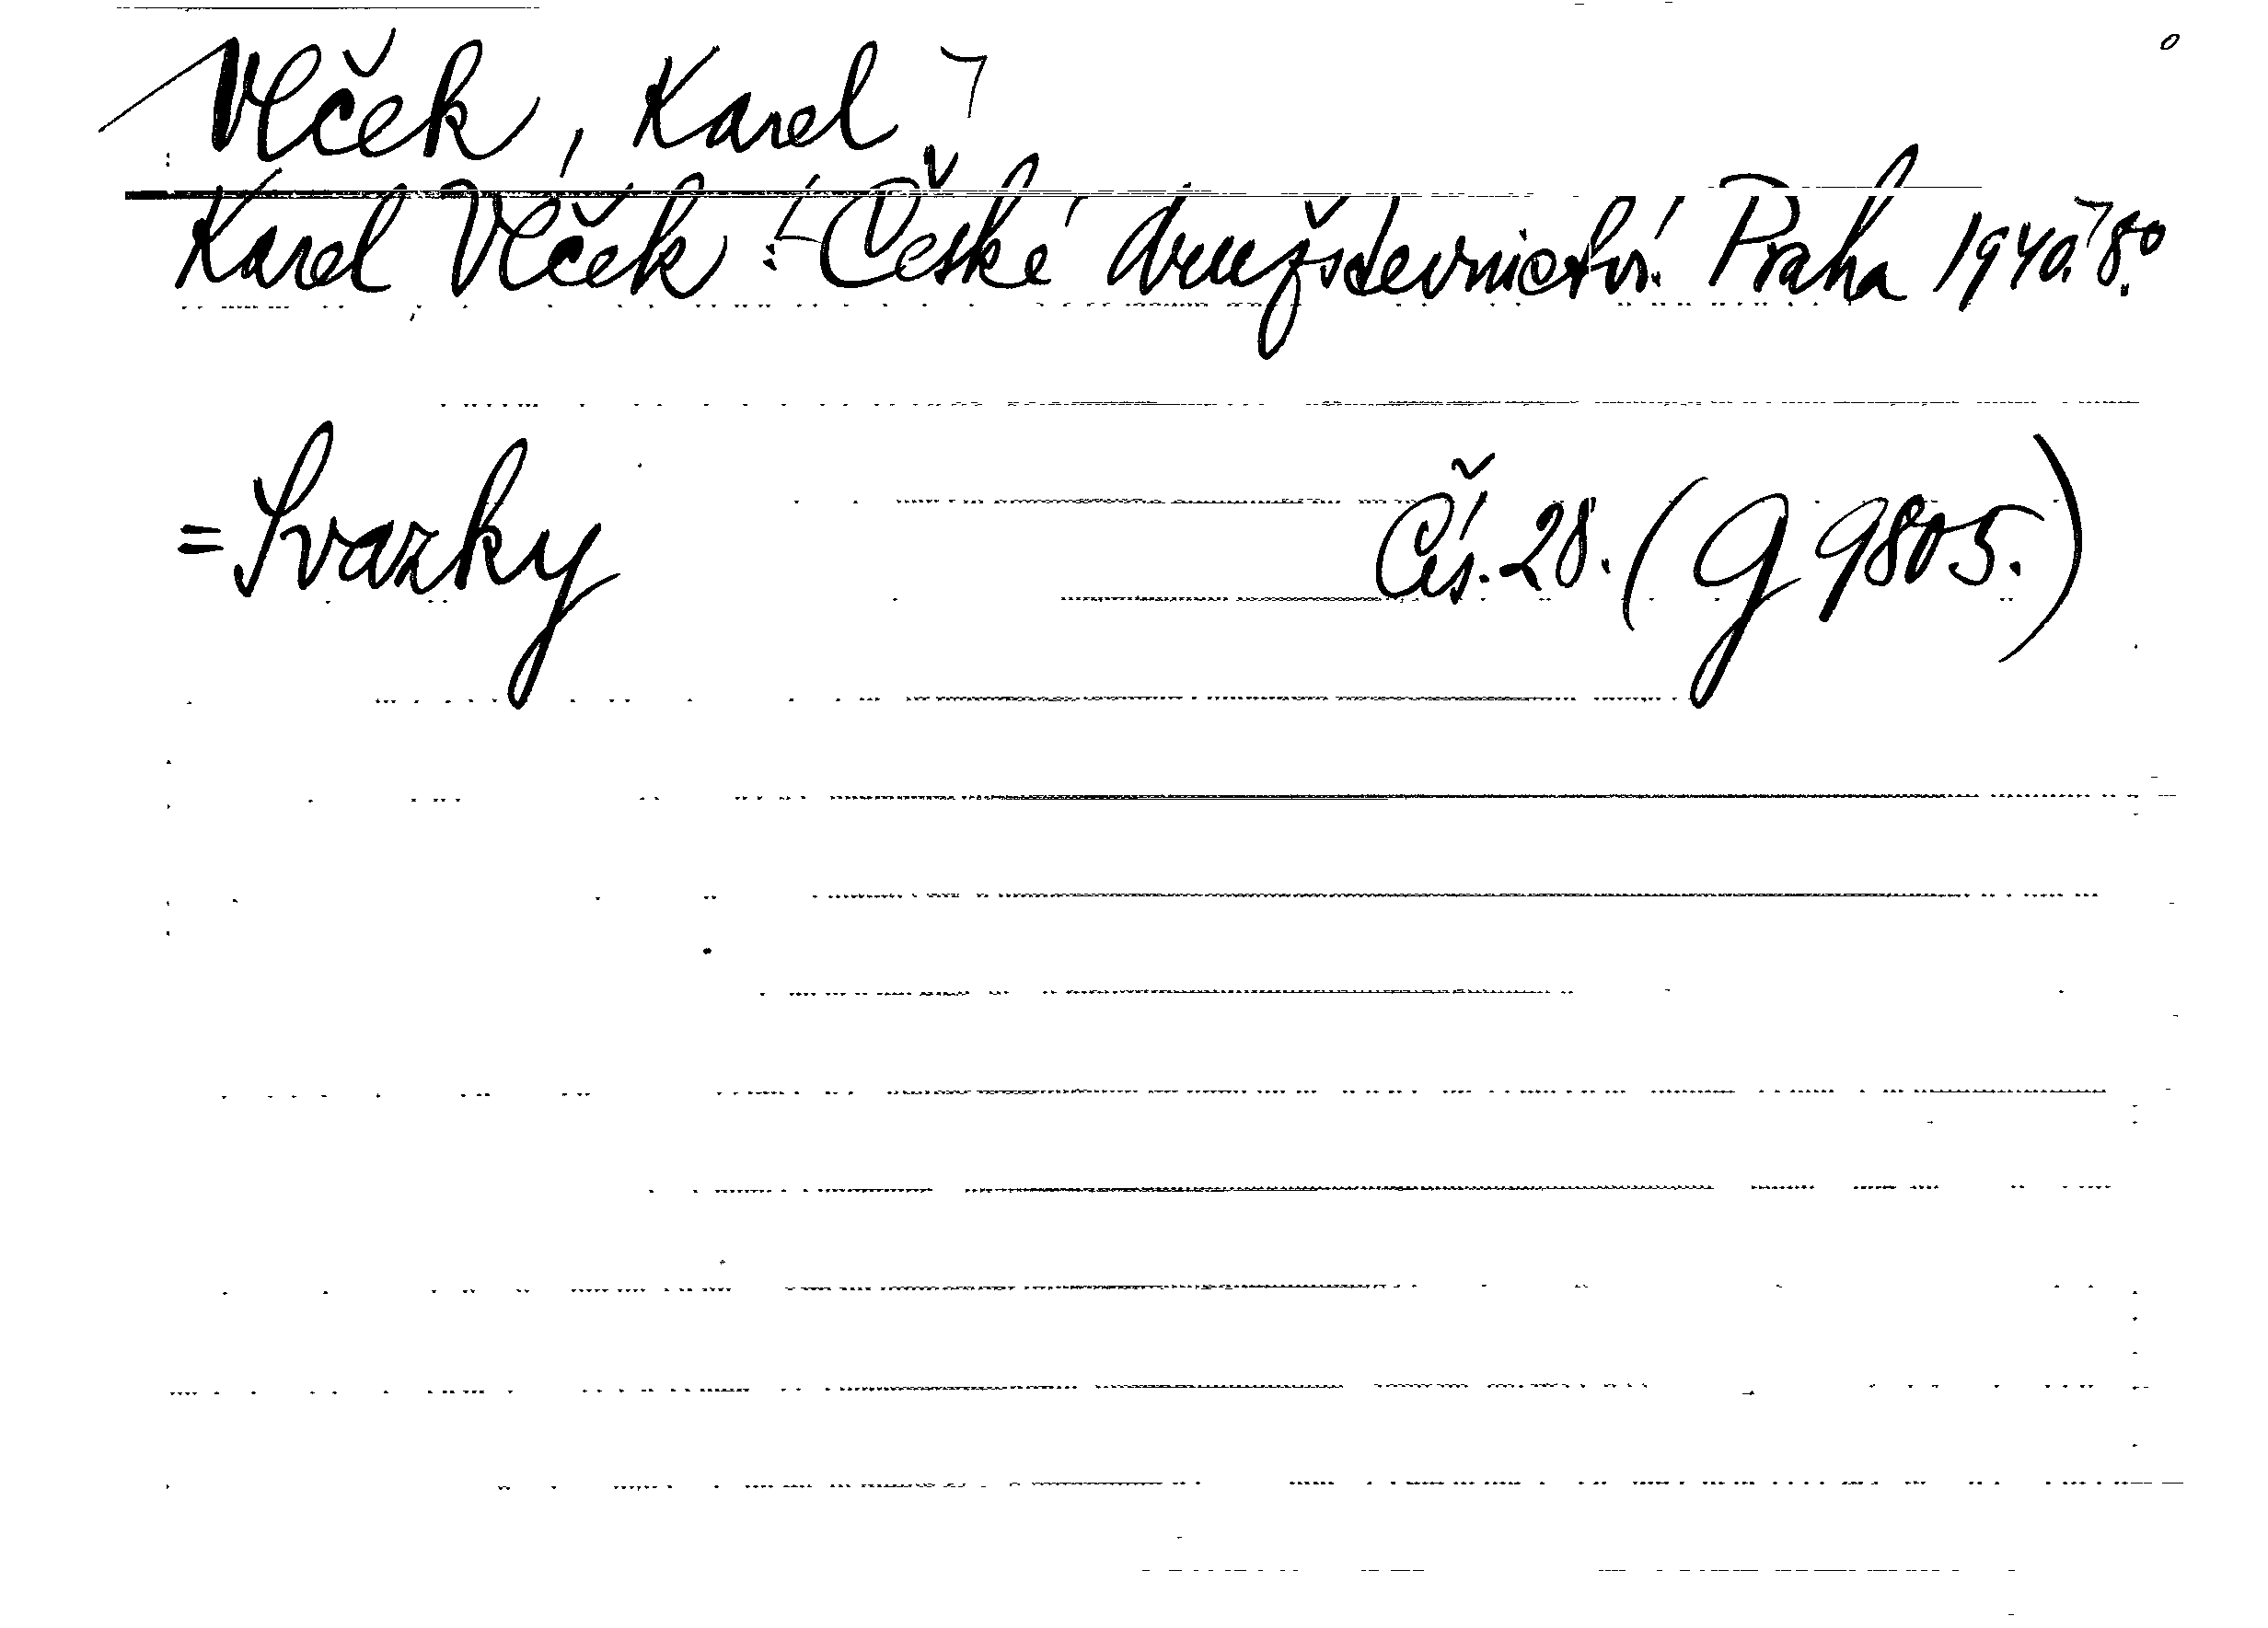 Vlček, Karel
Karel Vlček: České družstevnictví. Praha 1940. 8.°
= Svazky Čís. 28. (G 9805.)